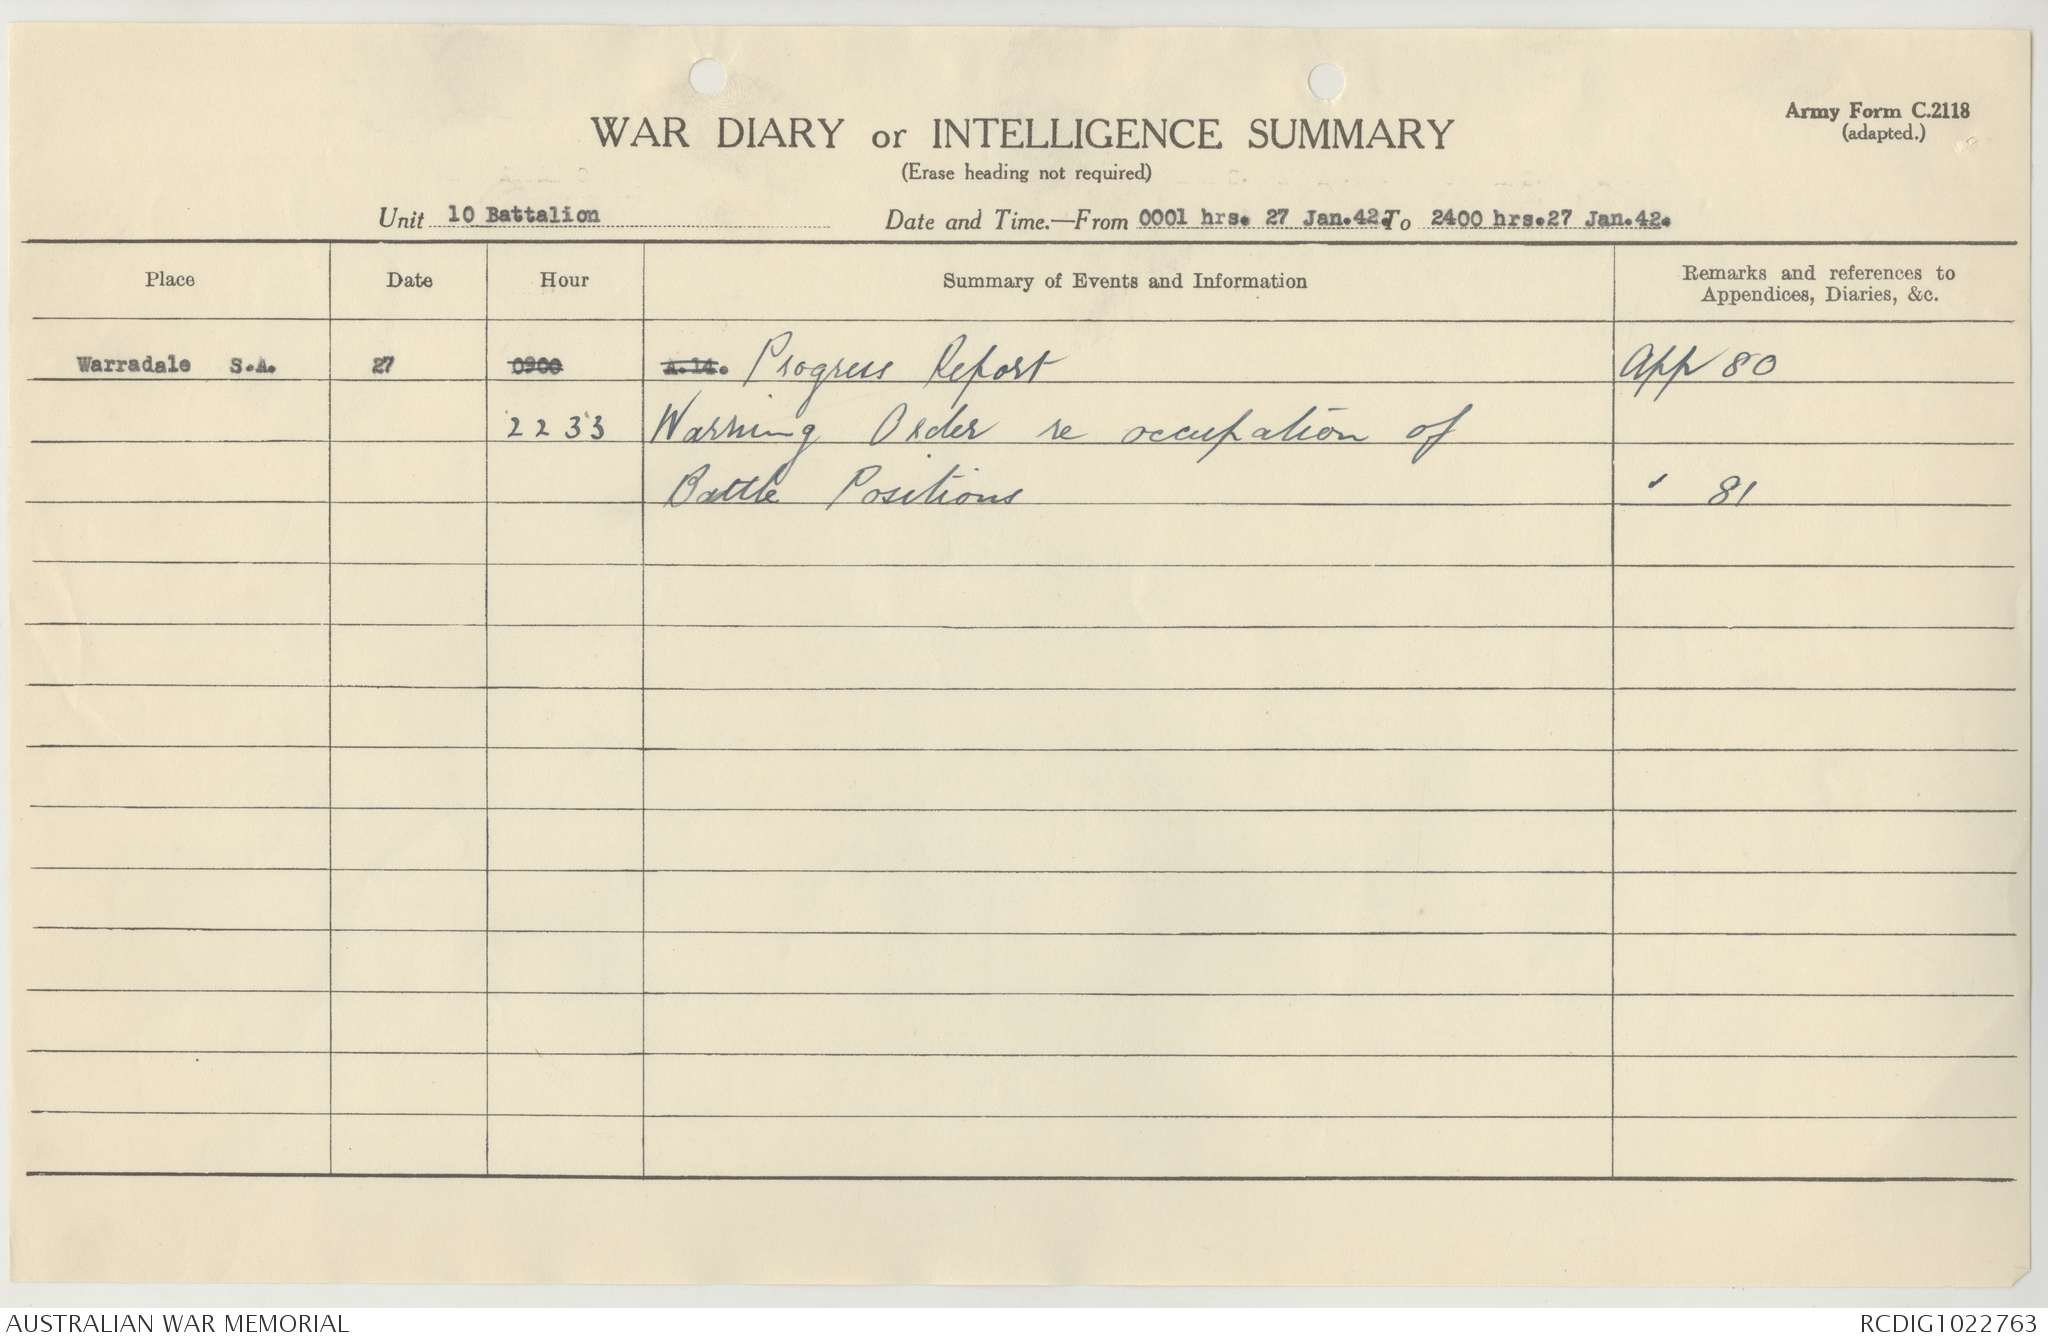 Army Form C.2118
(adapted.)
WAR DIARY or INTELLIGENCE SUMMARY
(Erase heading not required)
Unit 10 Battalion Date and Time.—From 0001 hrs. 27 Jan.42. To 2400 hrs.27 Jan.42.
Place Date Hour Summary of Events and Information Remarks and references to
Appendices, Diaries, &c.
Warradale S.A. 27 0900 A.14. Progress Report App 80
2233 Warning Order re occupation of
Battle Positions " 81
AUSTRALIAN WAR MEMORIAL RCDIG1022763